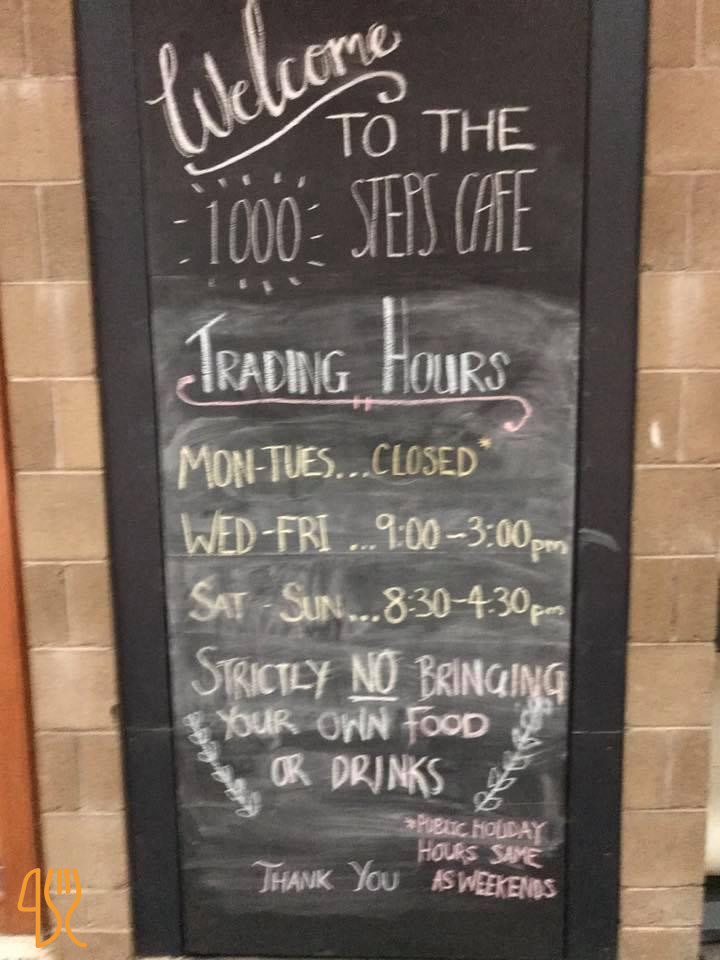 Welcome
TO THE
1000 STEPS CAFE
TRADING HOURS
MON-TUES...CLOSED*
WED-FRI ...9:00-3:00pm
SAT-SUN...8:30-4:30pm
STRICTLY NO BRINGING
YOUR OWN FOOD
OR DRINKS
*PUBLIC HOLIDAY
HOURS SAME
AS WEEKENDS
THANK YOU